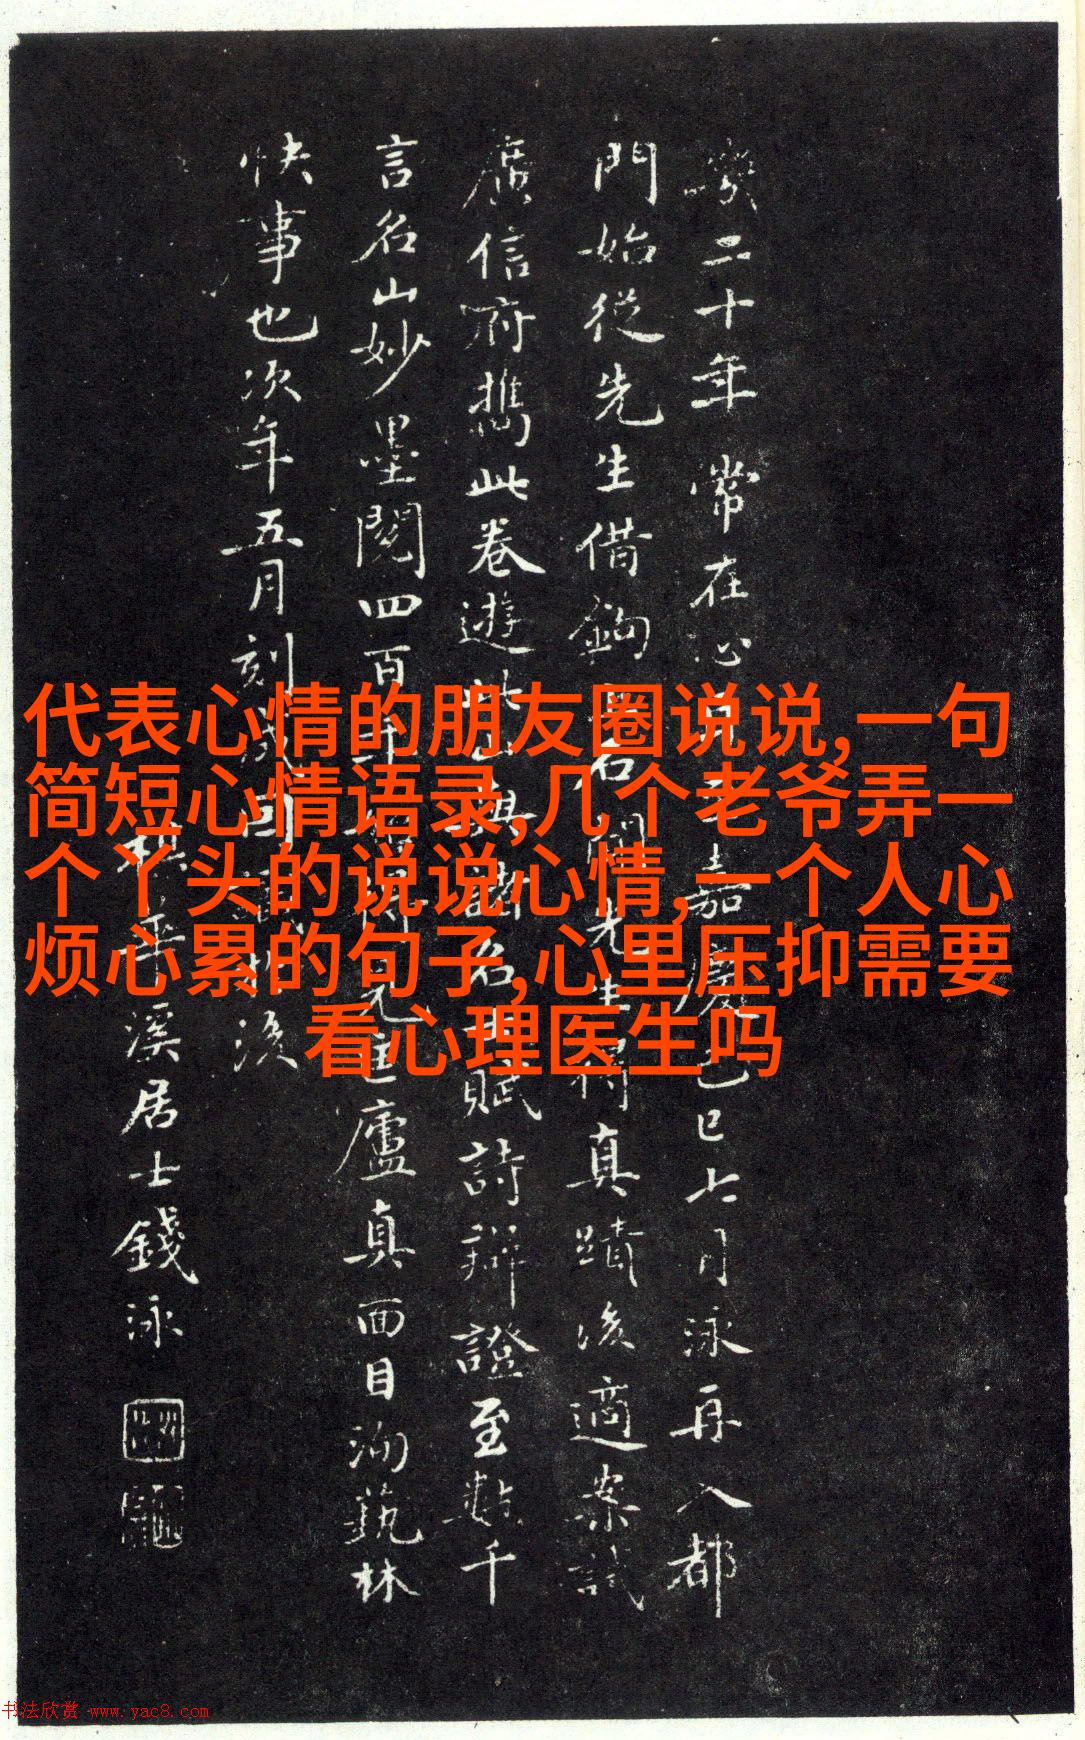 代表心情的朋友圈说说,一句
简短心情语录,几个老爷弄一
个丫头的说说心情,一个人心
烦心累的句子,心里压抑需要
看心理医生吗
二十年常在心嘉慶己巳七月泳再入都
門始從先生借鉤石先生得真蹟後適案試
廣信府攜此卷遊名賦詩辨證至數千
言名山妙墨閱四百年匡廬真面目洵藝林
快事也次年五月刻成後
溪居士錢泳
书法欣赏 www.yac8.com